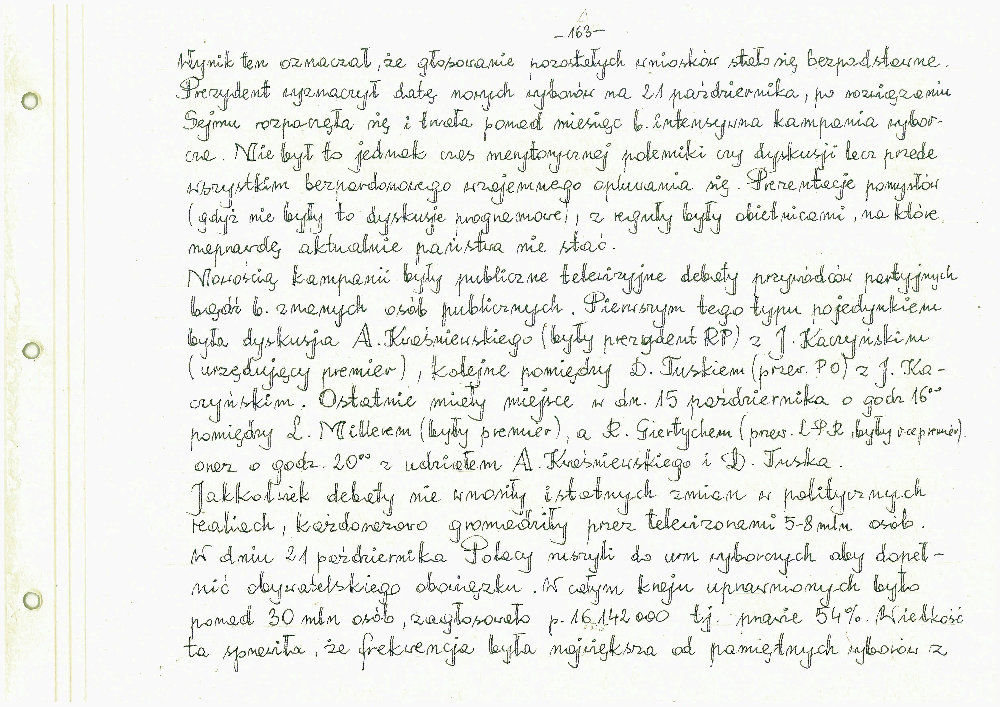 -163-
Wynik ten oznaczał, że głosowanie pozostałych wniosków stało się bezpodstawne.
Prezydent wyznaczył datę nowych wyborów na 21 października, po rozwiązaniu
Sejmu rozpoczęła się i trwała ponad miesiąc b. intensywna kampania wybor-
cza. Nie był to jednak czas merytorycznej polemiki czy dyskusji lecz przede
wszystkim bezpardonowego wzajemnego opluwania się. Prezentacje pomysłów
(gdyż nie były to dyskusje programowe), z reguły były obietnicami, na które
naprawdę aktualnie państwa nie stać.
Nowością kampanii były publiczne telewizyjne debaty przywódców partyjnych
bądź b. znanych osób publicznych. Pierwszym tego typu pojedynkiem
była dyskusja A. Kwaśniewskiego (były prezydent RP) z J. Kaczyńskim
(urzędujący premier), kolejne pomiędzy D. Tuskiem (przew. PO) z J. Ka-
czyńskim. Ostatnie miały miejsce w dn. 15 października o godz 16⁰⁰
pomiędzy L. Millerem (były premier), a R. Giertychem (przew. LPR, były vicepremier)
oraz o godz. 20⁰⁰ z udziałem A. Kwaśniewskiego i D. Tuska.
Jakkolwiek debaty nie wnosiły istotnych zmian w politycznych
realiach, każdorazowo gromadziły przez telewizorami 5-8 mln osób.
W dniu 21 października Polacy ruszyli do urn wyborczych aby dopeł-
nić obywatelskiego obowiązku. W całym kraju uprawnionych było
ponad 30 mln osób, zagłosowało p. 16 142 000 tj. prawie 54%. Wielkość
ta sprawiła, że frekwencja była największa od pamiętnych wyborów z